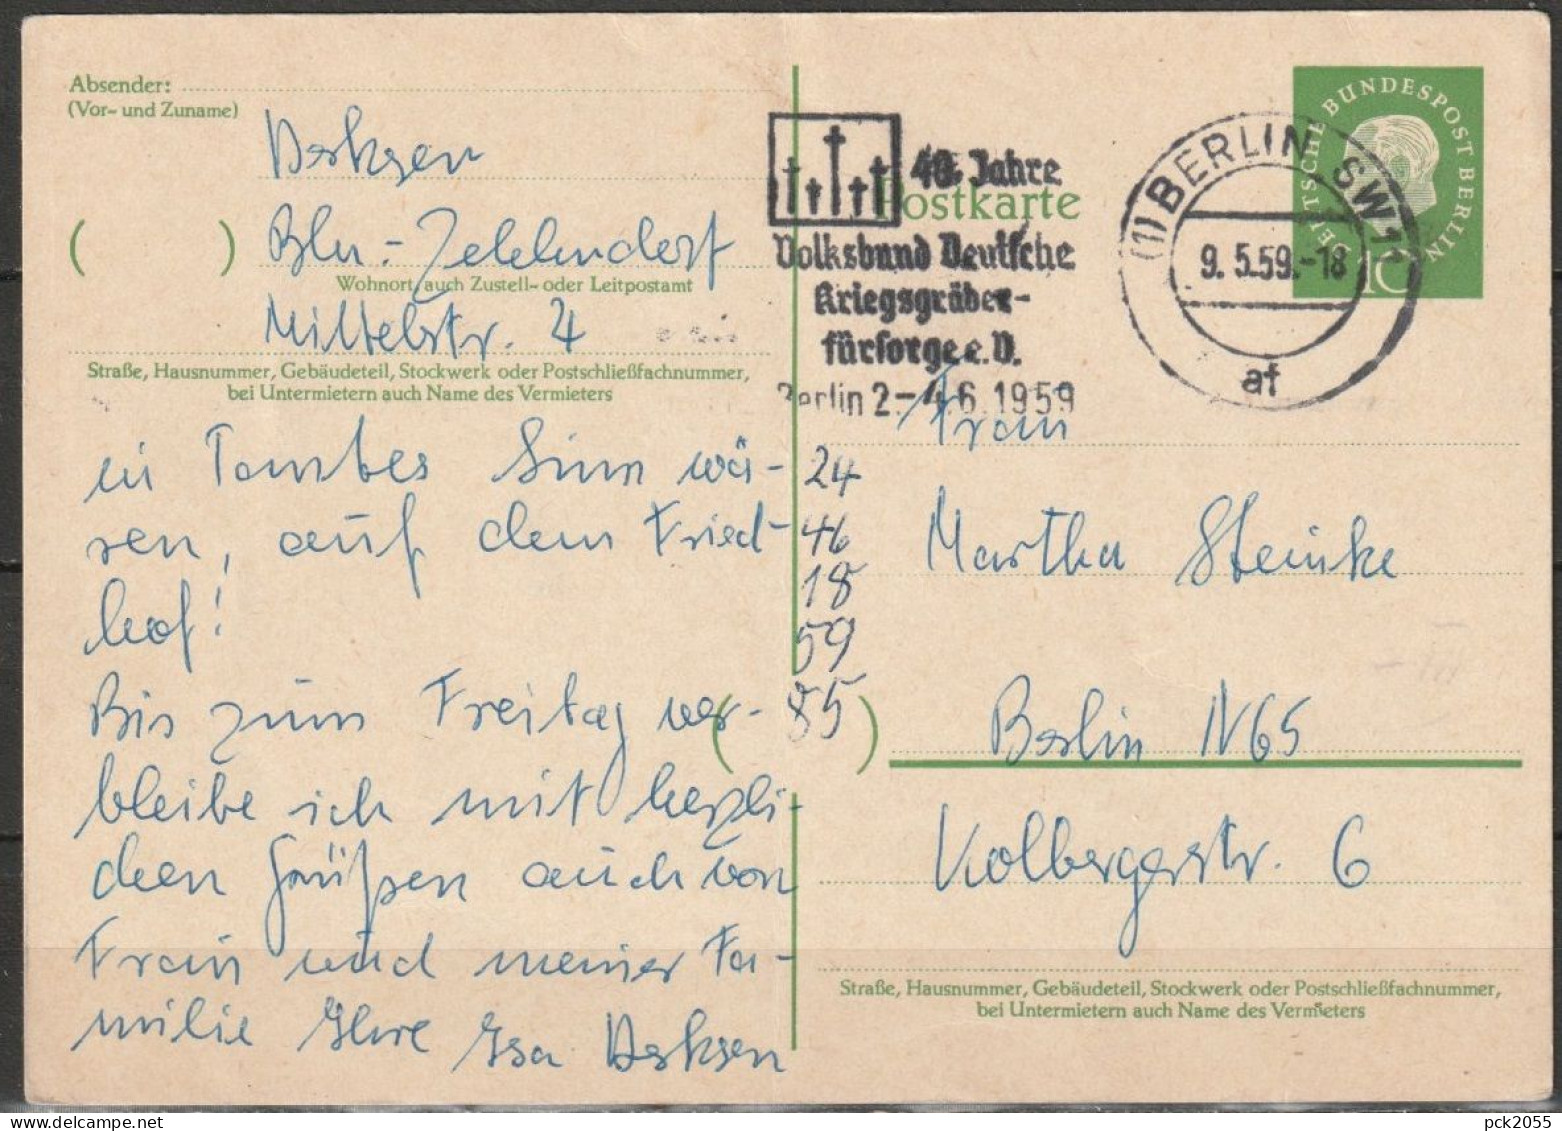 Absender:
(Vor- und Zuname)
Derksen
( ) Bln.-Zehlendorf
Wohnort, auch Zustell- oder Leitpostamt
Mittelstr. 4
Straße, Hausnummer, Gebäudeteil, Stockwerk oder Postschließfachnummer,
bei Untermietern auch Name des Vermieters
in Tantes Sinn wä-
ren, auf dem Fried-
hof!
Bis zum Freitag ver-
bleibe ich mit herzli-
chen Grüßen auch von
Frau und meiner Fa-
milie Ihre Isa Derksen
24
46
18
59
85
40 Jahre
Volksbund Deutsche
Kriegsgräber-
fürsorge e.V.
Berlin 2.-4.6.1959
Postkarte
(1) BERLIN SW11
9.5.59.-18
af
DEUTSCHE BUNDESPOST BERLIN
10
Frau
Martha Steinke
( ) Berlin N65
Kolbergerstr. 6
Straße, Hausnummer, Gebäudeteil, Stockwerk oder Postschließfachnummer,
bei Untermietern auch Name des Vermieters
pck2055